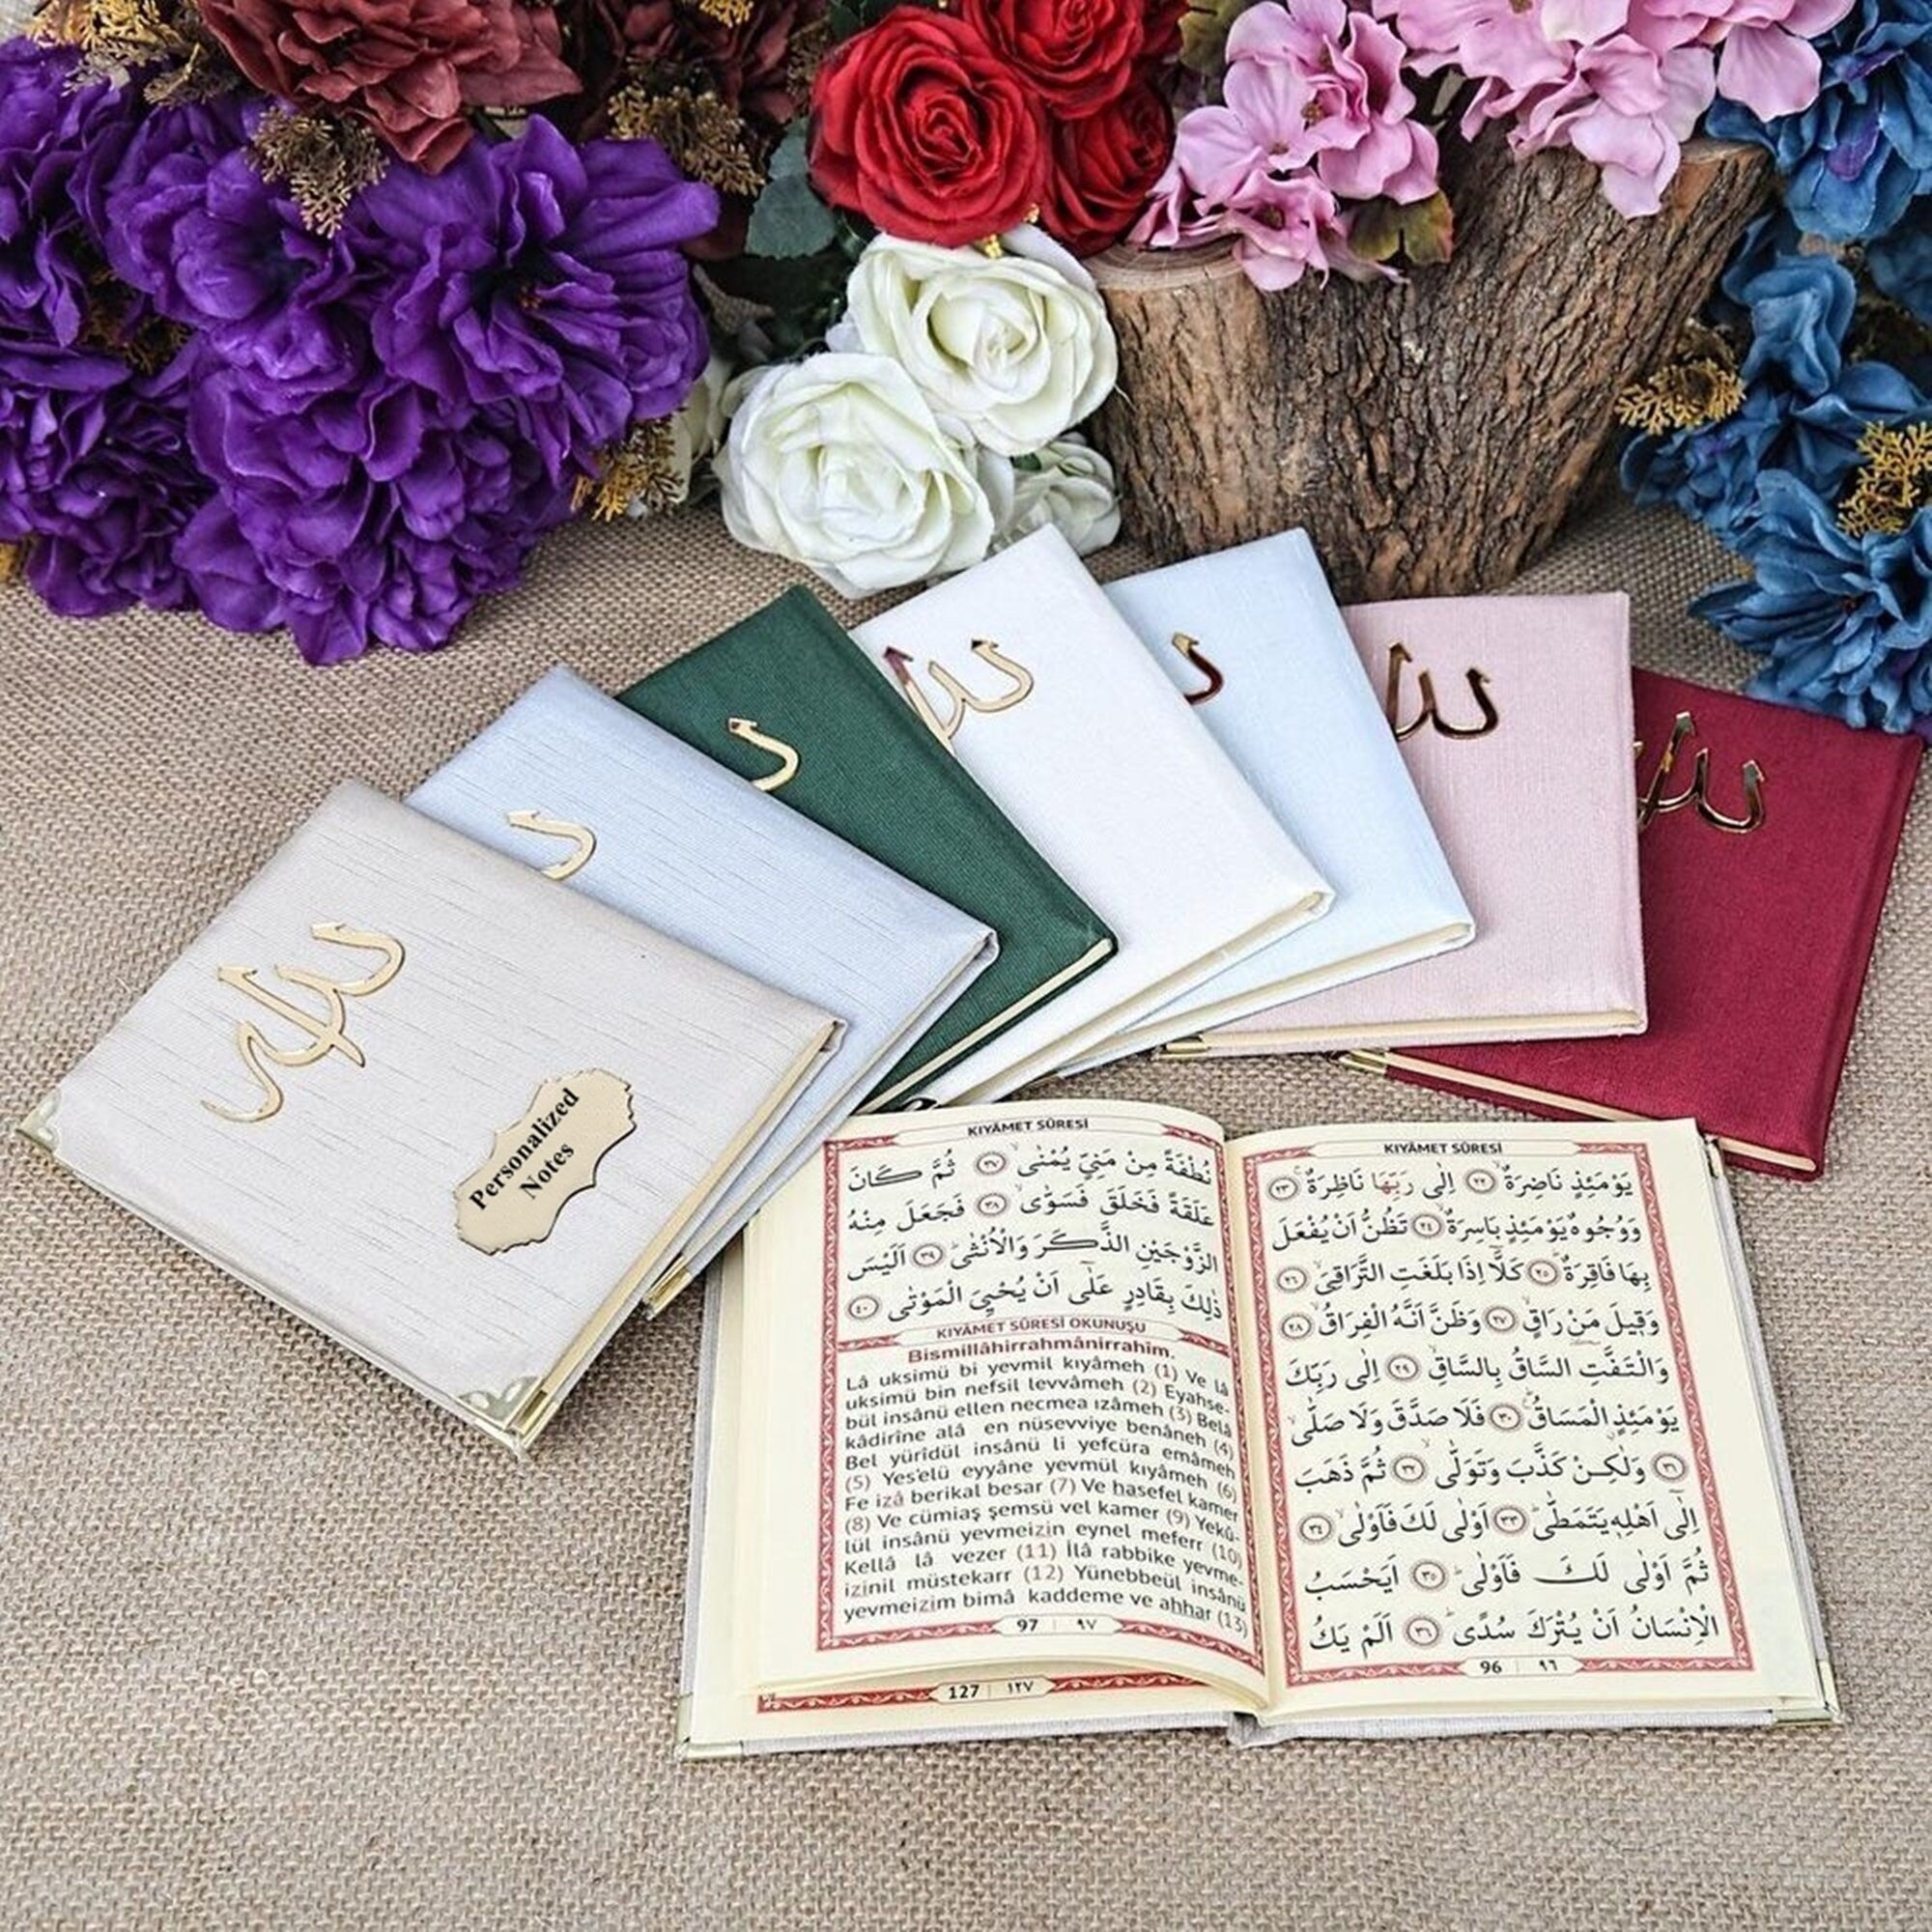 Personalized
Notes
KIYÂMET SÛRESİ
يَوْمَئِذٍ نَاضِرَةٌ ﴿٢٢﴾ اِلٰى رَبِّهَا نَاظِرَةٌ ﴿٢٣﴾
وَوُجُوهٌ يَوْمَئِذٍ بَاسِرَةٌ ﴿٢٤﴾ تَظُنُّ اَنْ يُفْعَلَ
بِهَا فَاقِرَةٌ ﴿٢٥﴾ كَلَّٓا اِذَا بَلَغَتِ التَّرَاقِيَ ﴿٢٦﴾
وَقِيلَ مَنْ رَاقٍ ﴿٢٧﴾ وَظَنَّ اَنَّهُ الْفِرَاقُ ﴿٢٨﴾
وَالْتَفَّتِ السَّاقُ بِالسَّاقِ ﴿٢٩﴾ اِلٰى رَبِّكَ
يَوْمَئِذٍ الْمَسَاقُ ﴿٣٠﴾ فَلَا صَدَّقَ وَلَا صَلّٰى
﴿٣١﴾ وَلٰكِنْ كَذَّبَ وَتَوَلّٰى ﴿٣٢﴾ ثُمَّ ذَهَبَ
اِلٰٓى اَهْلِهٖ يَتَمَطّٰى ﴿٣٣﴾ اَوْلٰى لَكَ فَاَوْلٰى ﴿٣٤﴾
ثُمَّ اَوْلٰى لَكَ فَاَوْلٰى ﴿٣٥﴾ اَيَحْسَبُ
الْاِنْسَانُ اَنْ يُتْرَكَ سُدًى ﴿٣٦﴾ اَلَمْ يَكُ
96 | ٩٦
KIYÂMET SÛRESİ
نُطْفَةً مِنْ مَنِيٍّ يُمْنٰى ﴿٣٧﴾ ثُمَّ كَانَ
عَلَقَةً فَخَلَقَ فَسَوّٰى ﴿٣٨﴾ فَجَعَلَ مِنْهُ
الزَّوْجَيْنِ الذَّكَرَ وَالْاُنْثٰى ﴿٣٩﴾ اَلَيْسَ
ذٰلِكَ بِقَادِرٍ عَلٰٓى اَنْ يُحْيِيَ الْمَوْتٰى ﴿٤٠﴾
KIYÂMET SÛRESİ OKUNUŞU
Bismillâhirrahmânirrahîm.
Lâ uksimü bi yevmil kıyâmeh (1) Ve lâ
uksimü bin nefsil levvâmeh (2) Eyahse-
bül insânü ellen necmea ızâmeh (3) Belâ
kâdirîne alâ en nüsevviye benâneh (4)
Bel yürîdül insânü li yefcüra emâmeh
(5) Yes'elü eyyâne yevmül kıyâmeh (6)
Fe izâ berikal besar (7) Ve hasefel kamer
(8) Ve cümiaş şemsü vel kamer (9) Yekû-
lül insânü yevmeizin eynel meferr (10)
Kellâ lâ vezer (11) İlâ rabbike yevme-
izinil müstekarr (12) Yünebbeül insânü
yevmeizim bimâ kaddeme ve ahhar (13)
97 | ٩٧
127 | ١٢٧